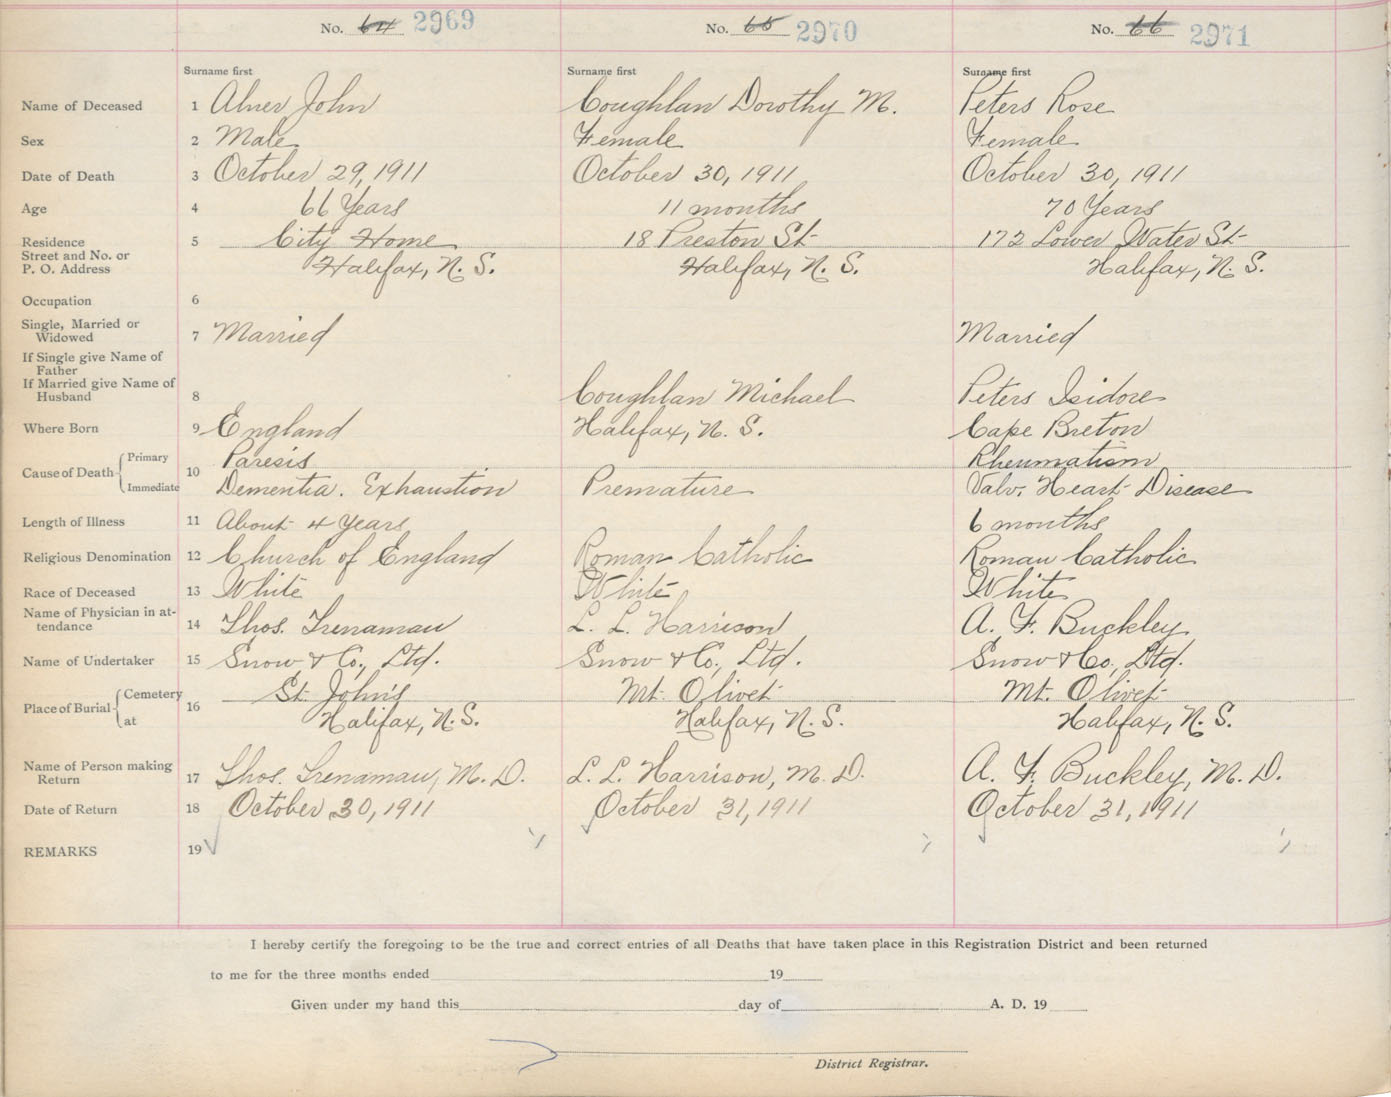 No. 64 2969 No. 65 2970 No. 66 2971
Surname first Surname first Surname first
Name of Deceased 1 Abner John Coughlan Dorothy M. Peters Rose
Sex 2 Male Female Female
Date of Death 3 October 29, 1911 October 30, 1911 October 30, 1911
Age 4 66 Years 11 months 70 Years
Residence 5 City Home 18 Preston St 172 Lower Water St
Street and No. or
P. O. Address Halifax, N. S. Halifax, N. S. Halifax, N. S.
Occupation 6
Single, Married or
Widowed 7 Married Married
If Single give Name of
Father
If Married give Name of
Husband 8 Coughlan Michael Peters Isidore
Where Born 9 England Halifax, N. S. Cape Breton
Cause of Death Primary 10 Paresis Rheumatism
Immediate Dementia. Exhaustion Premature Valv. Heart Disease
Length of Illness 11 About 4 Years 6 months
Religious Denomination 12 Church of England Roman Catholic Roman Catholic
Race of Deceased 13 White White White
Name of Physician in at-
tendance 14 Thos. Trenaman L. L. Harrison A. F. Buckley
Name of Undertaker 15 Snow & Co., Ltd. Snow & Co., Ltd. Snow & Co., Ltd.
Place of Burial Cemetery 16 St. John's Mt. Olivet Mt. Olivet
at Halifax, N. S. Halifax, N. S. Halifax, N. S.
Name of Person making
Return 17 Thos. Trenaman, M. D. L. L. Harrison, M. D. A. F. Buckley, M. D.
Date of Return 18 October 30, 1911 October 31, 1911 October 31, 1911
REMARKS 19
I hereby certify the foregoing to be the true and correct entries of all Deaths that have taken place in this Registration District and been returned
to me for the three months ended 19
Given under my hand this day of A. D. 19
District Registrar.